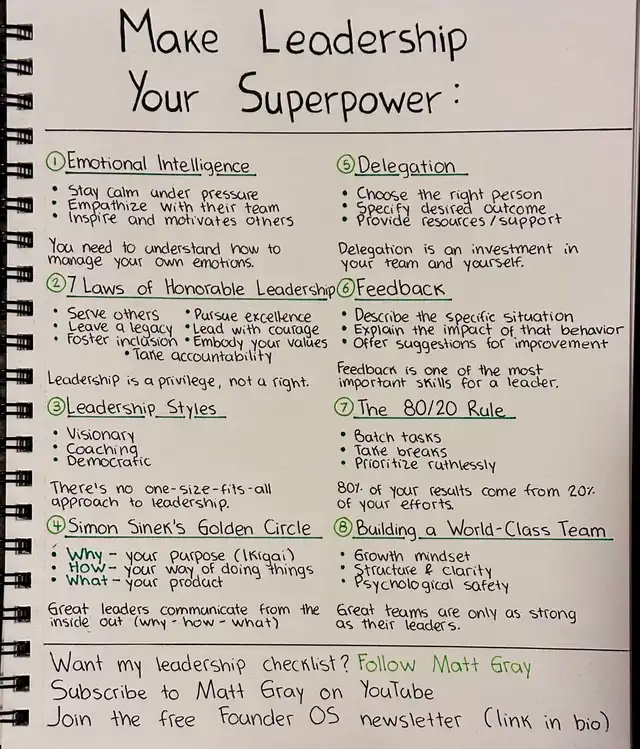 Make Leadership
Your Superpower:
① Emotional Intelligence
• Stay calm under pressure
• Empathize with their team
• Inspire and motivates others
You need to understand how to
manage your own emotions.
② 7 Laws of Honorable Leadership
• Serve others • Pursue excellence
• Leave a legacy • Lead with courage
• Foster inclusion • Embody your values
• Take accountability
Leadership is a privilege, not a right.
③ Leadership Styles
• Visionary
• Coaching
• Democratic
There's no one-size-fits-all
approach to leadership.
④ Simon Sinek's Golden Circle
• Why - your purpose (Ikigai)
• How - your way of doing things
• What - your product
Great leaders communicate from the
inside out (why - how - what)
⑤ Delegation
• Choose the right person
• Specify desired outcome
• Provide resources/support
Delegation is an investment in
your team and yourself.
⑥ Feedback
• Describe the specific situation
• Explain the impact of that behavior
• Offer suggestions for improvement
Feedback is one of the most
important skills for a leader.
⑦ The 80/20 Rule
• Batch tasks
• Take breaks
• Prioritize ruthlessly
80% of your results come from 20%
of your efforts.
⑧ Building a World-Class Team
• Growth mindset
• Structure & clarity
• Psychological safety
Great teams are only as strong
as their leaders.
Want my leadership checklist? Follow Matt Gray
Subscribe to Matt Gray on YouTube
Join the free Founder OS newsletter (link in bio)